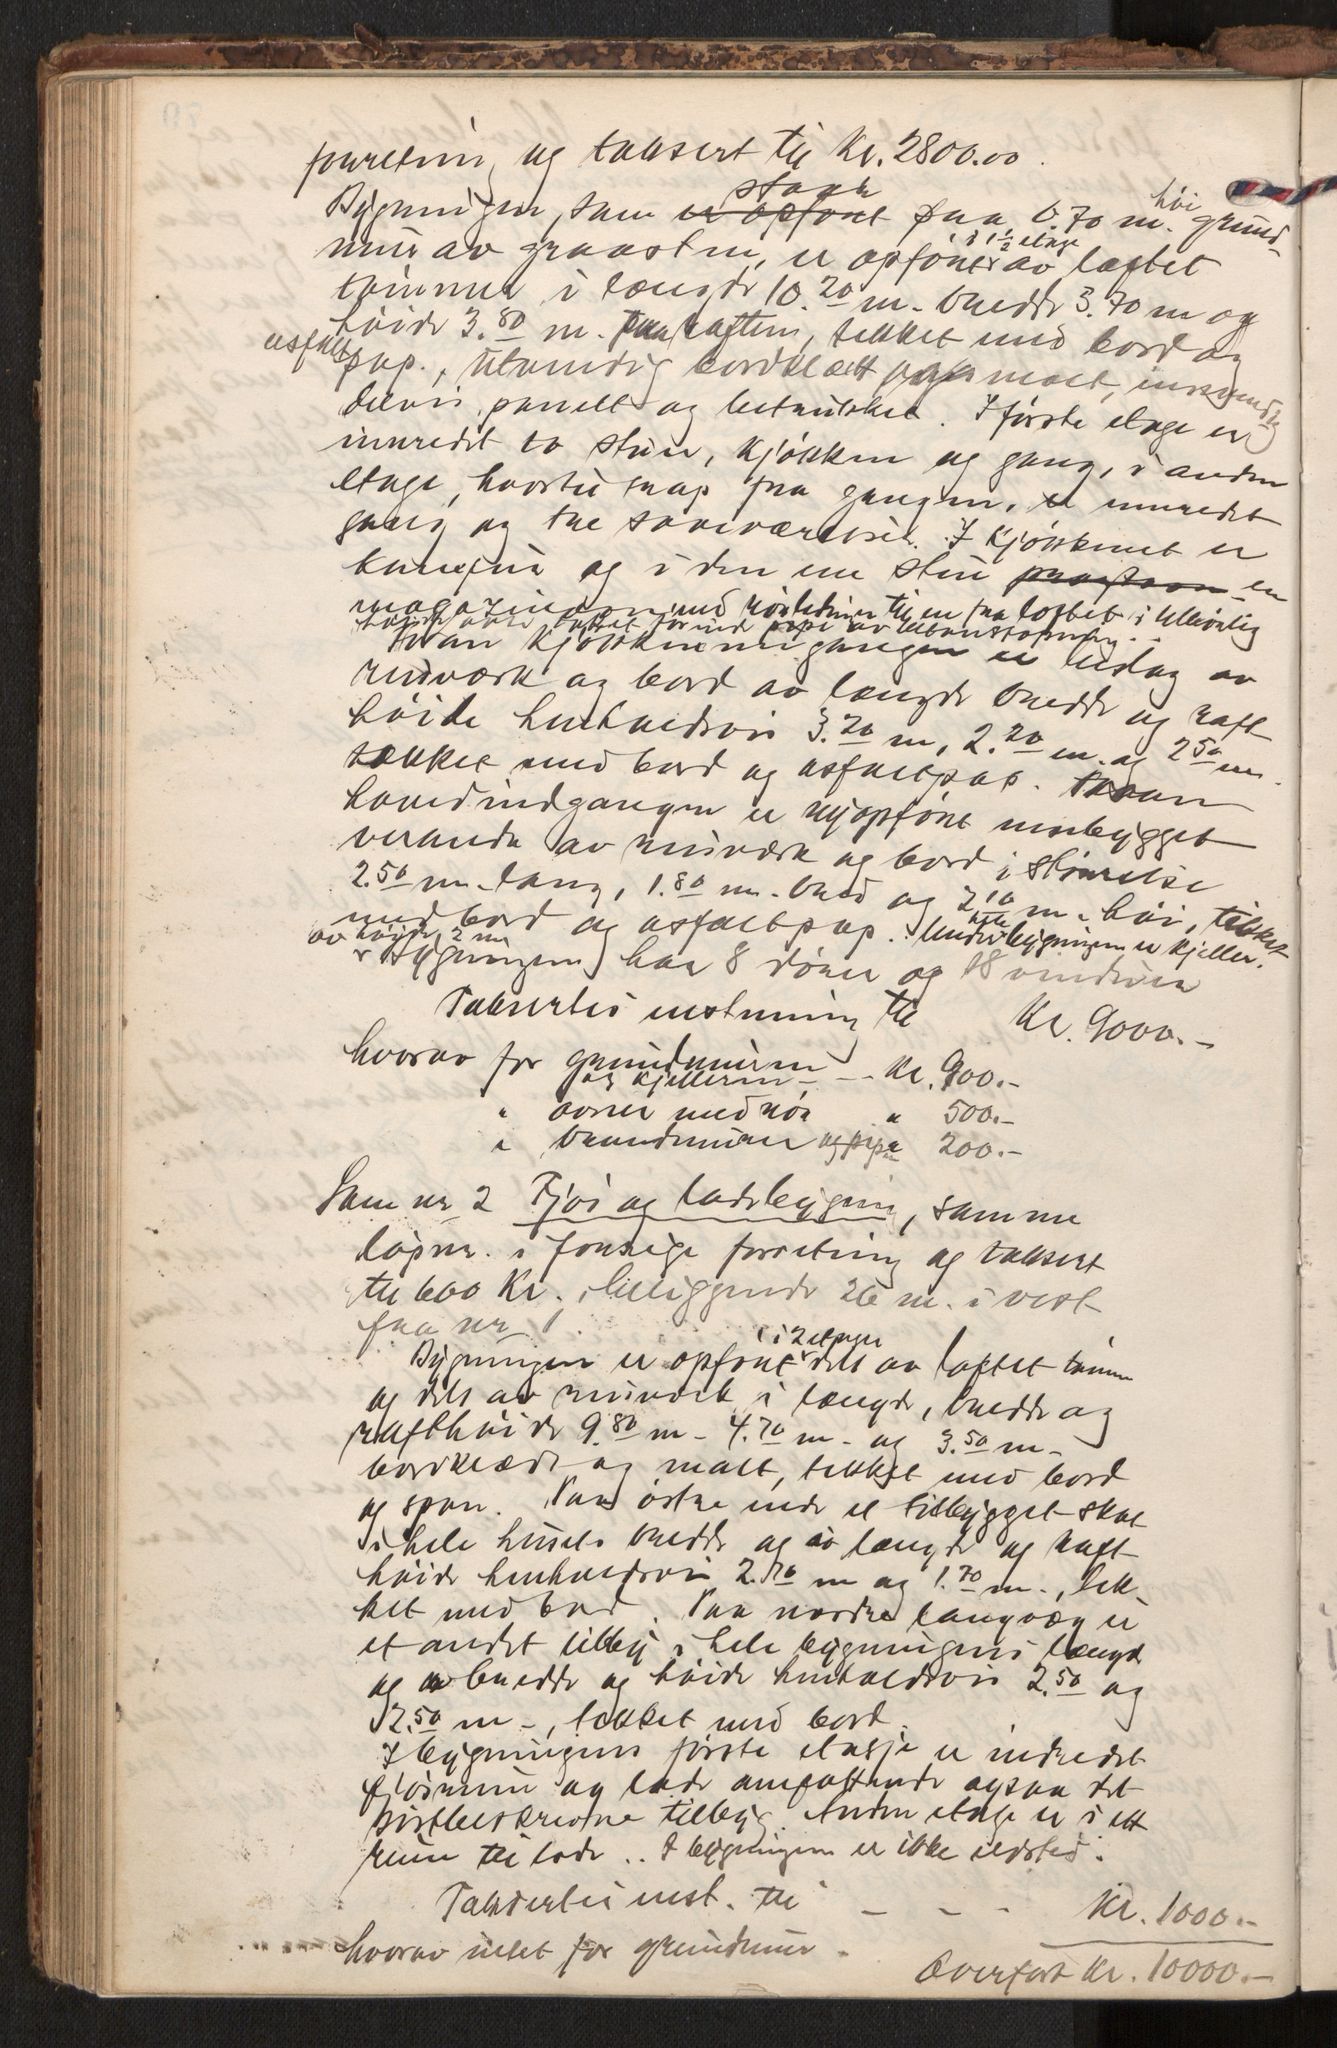 forretning og taksert til Kr. 2800.00.
Bygningen, som er opført staar paa 0.70 m. høi grund-
mur av graasten, er opført i 1½ etage av laftet
tømmer i længde 10.20 m. bredde 3.70 m og
høide 3.80 m. paa raften, tekket med bord og
asfaltpap., utvendig bordklædt og malt, indvendig
delvis panelt og betrukket. I første etage er
innredet to stuer, kjøkken og gang, i anden
etage, hvortil trap fra gangen, er innredet
gang og tre soveværelser. I kjøkkenet er
komfur og i den ene stue en
magazinovn med rørledning til en fra loftet i tilbørlig
høide over taket førende pipe av
Foran kjøkkeninngangen er bislag av
reisværk og bord av længde bredde og raft-
høide henholdsvis 3.20 m, 2.20 m. og 2.50 m.
tækket med bord og asfaltpap. Foran
hovedindgangen er nyopført innbygget
veranda av reisværk og bord i størrelse
2.50 m. lang, 1.80 m. bred og 2.10 m. høi, tekket
med bord og asfaltpap. Under hele bygningen er kjeller
av høide 2 m
Bygningen har 8 dører og 18 vinduer
Takseres enstemmig til Kr. 9000.-
hvorav for grundmuren
og kjelleren - - Kr. 900.-
" ovner med rør " 500.-
" brandmurer og pipe 200.-
Som nr 2 Fjøs og ladebygning, samme
løpnr. i forrige forretning og taksert
til 600 Kr., beliggende 26 m. i vest
fra nr 1.
Bygningen er opført i 2 etager dels av laftet tømmer
og dels av reisverk i længde, bredde og
rafthøide 9.80 m - 4.70 m - og 3.50 m -
bordklædt og malt, tekket med bord
og spon. Paa østre ende er tilbygget skot
i hele husets bredde og av længde og raft-
høide henholdsvis 2. m og 1.70 m., tek-
ket med bord. Paa nordre langvæg er
et andet tilbyg i hele bygningens længde
og av bredde og høide henholdsvis 2.50 og
2.50 m -, tekket med bord.
I bygningens første etasje er indredet
fjøsrum og lade omfattende ogsaa det
sistbeskrevne tilbyg. Anden etage er i ett
rum til lade. I bygningen er ikke ildsted.
Takseres enst. til - - - Kr. 1000.-
hvorav intet for grundmur.
Overført Kr. 10000.-